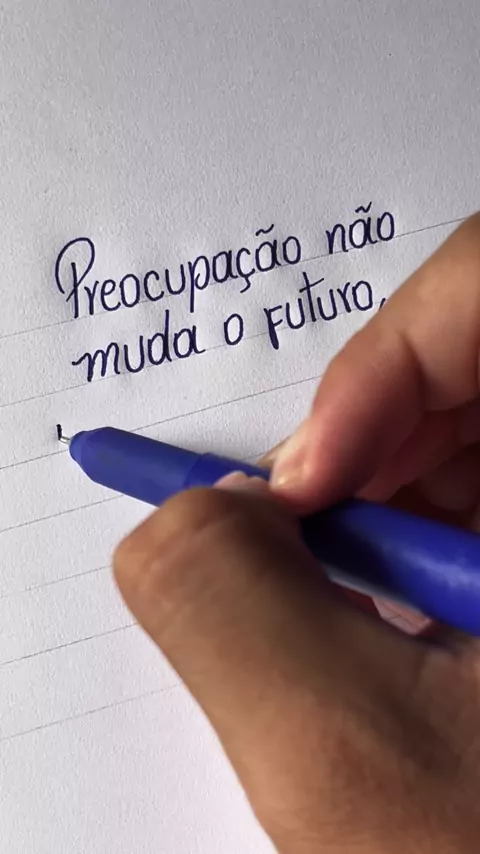 Preocupação não
muda o futuro,